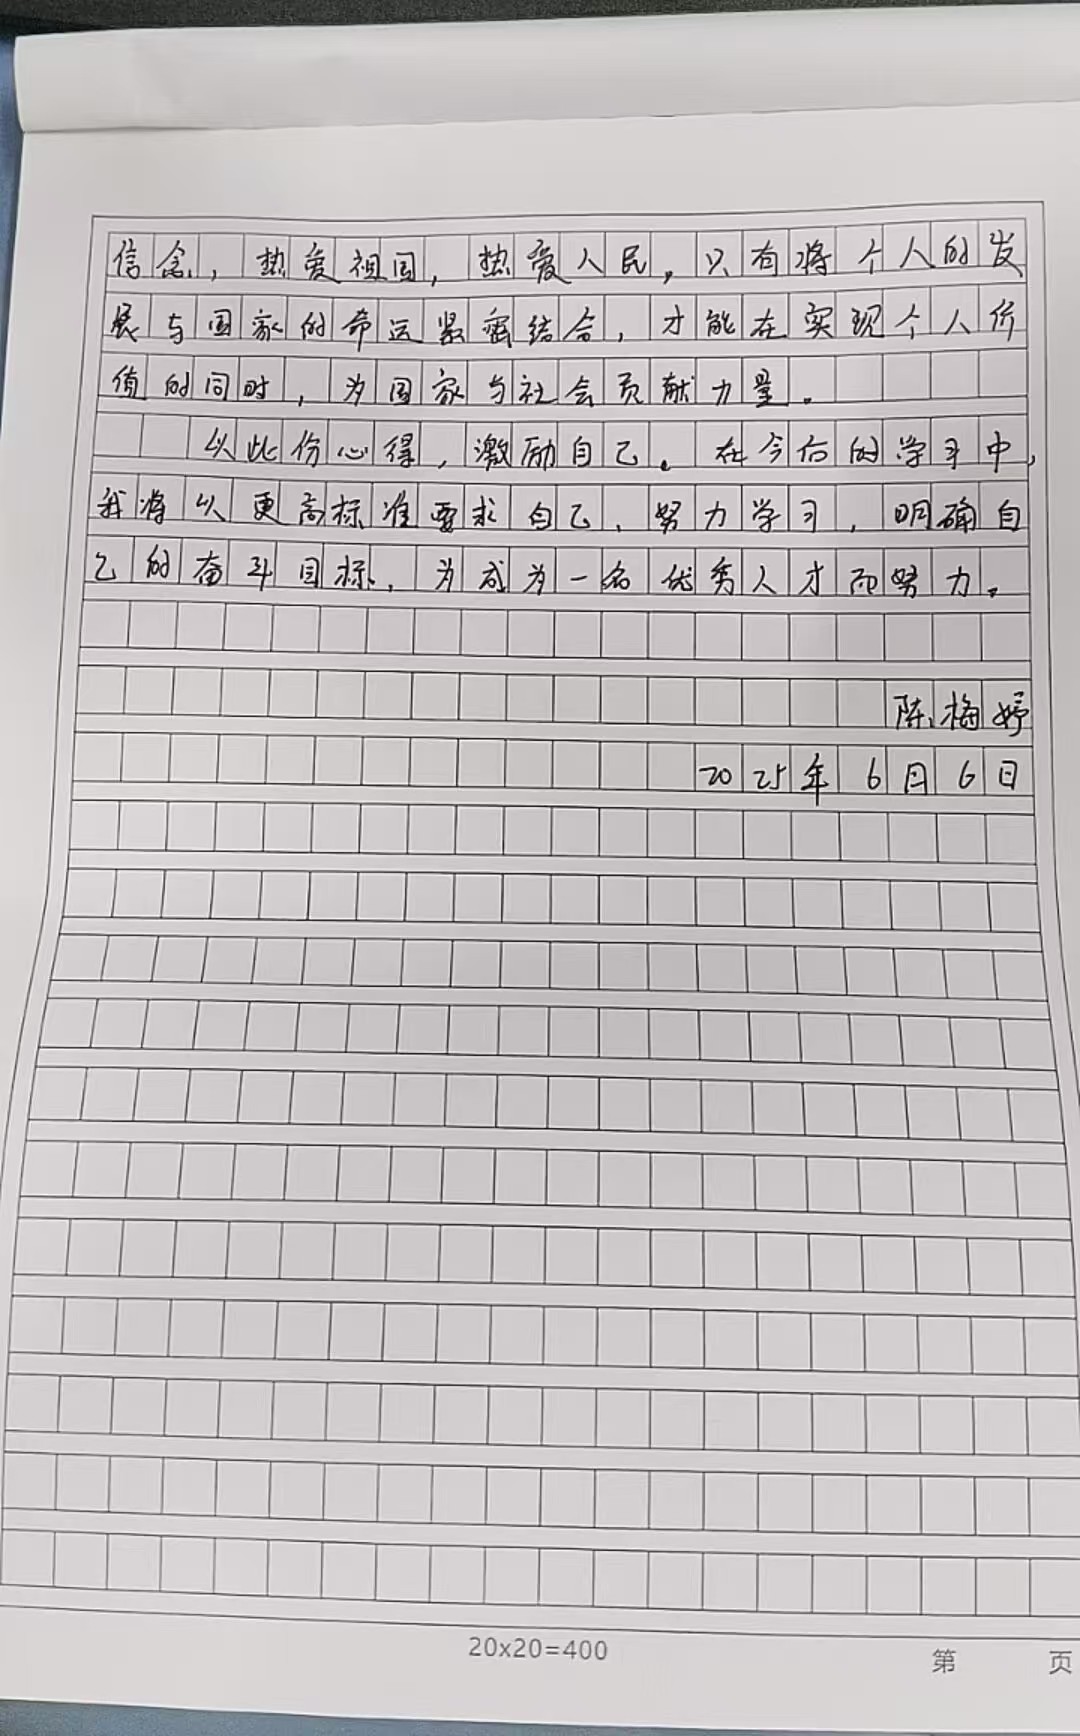 信念，热爱祖国，热爱人民，只有将个人的发
展与国家的命运紧密结合，才能在实现个人价
值的同时，为国家与社会贡献力量。
以此份心得，激励自己。在今后的学习中，
我将以更高标准要求自己，努力学习，明确自
己的奋斗目标，为成为一名优秀人才而努力。
陈梅婷
2025年6月6日
20x20=400
第 页